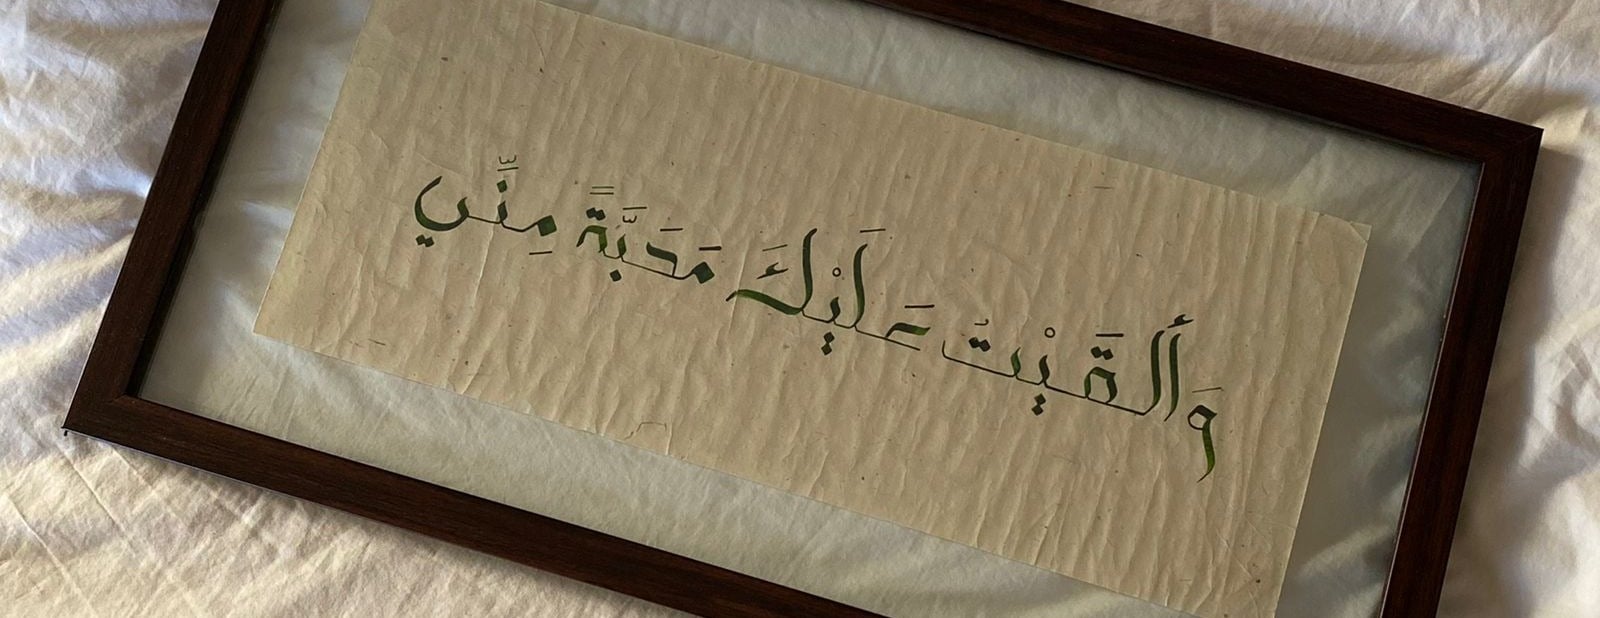 وَأَلقَيْتُ عَلَيْكَ مَحَبَّةً مِنِّي